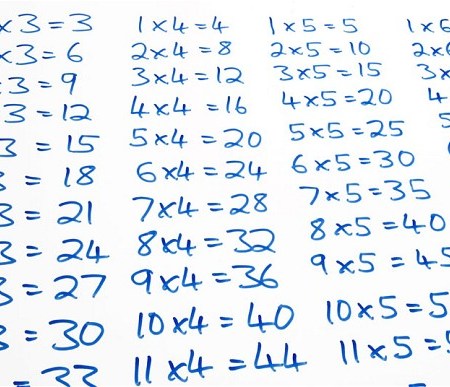 x3 = 3 1x4 = 4 1x5 = 5 1x6
x3 = 6 2x4 = 8 2x5 = 10 2x6
3 = 9 3x4 = 12 3x5 = 15 3x
3 = 12 4x4 = 16 4x5 = 20 4
3 = 15 5x4 = 20 5x5 = 25
= 18 6x4 = 24 6x5 = 30
3 = 21 7x4 = 28 7x5 = 35
3 = 24 8x4 = 32 8x5 = 40
3 = 27 9x4 = 36 9x5 = 45
= 30 10x4 = 40 10x5 = 5
= 33 11x4 = 44 11x5 =